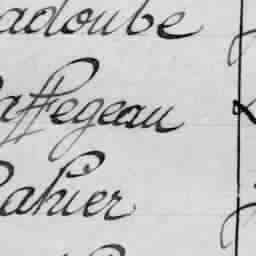 adoube
affegeau
ahier